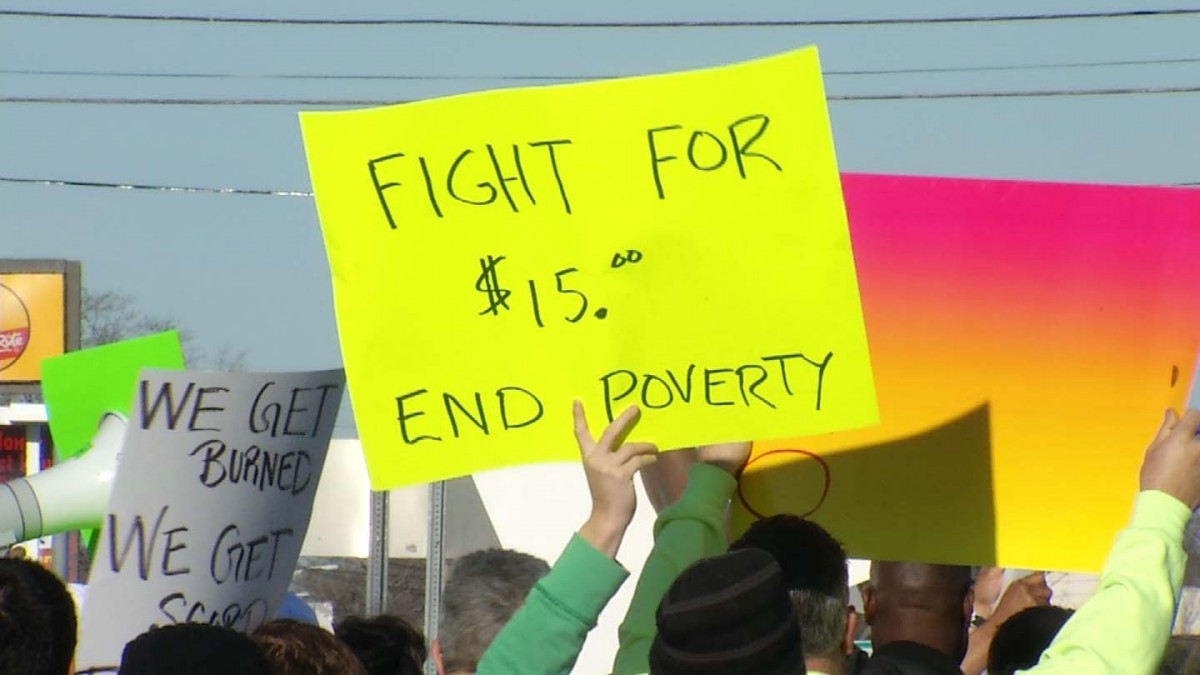 FIGHT FOR
$15.00
END POVERTY
WE GET
BURNED
WE GET